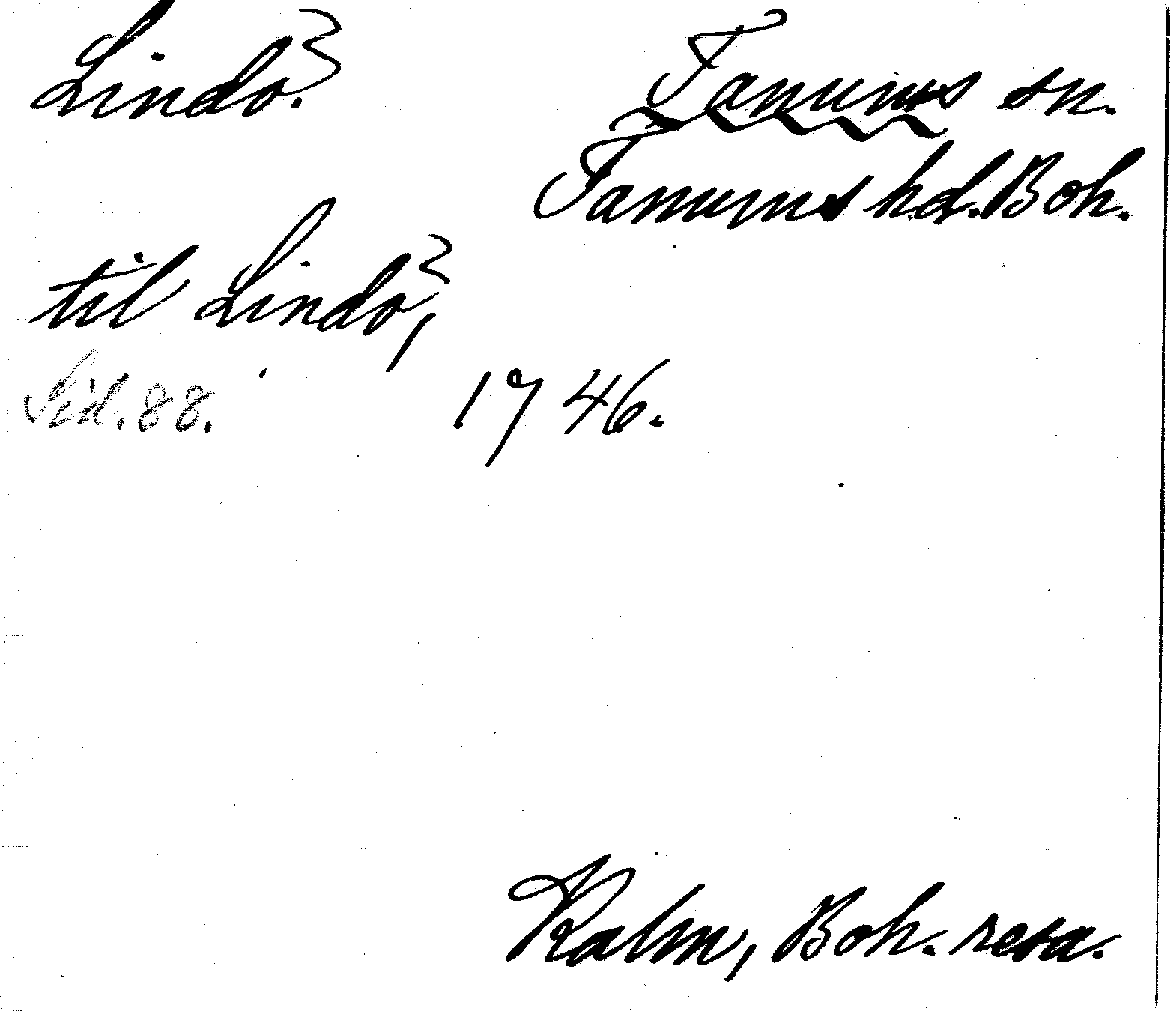 Lindö. Tanums sn.
Tanums hd. Boh.
til Lindö,
Sid. 88. 1746.
Kalm, Boh. resa.